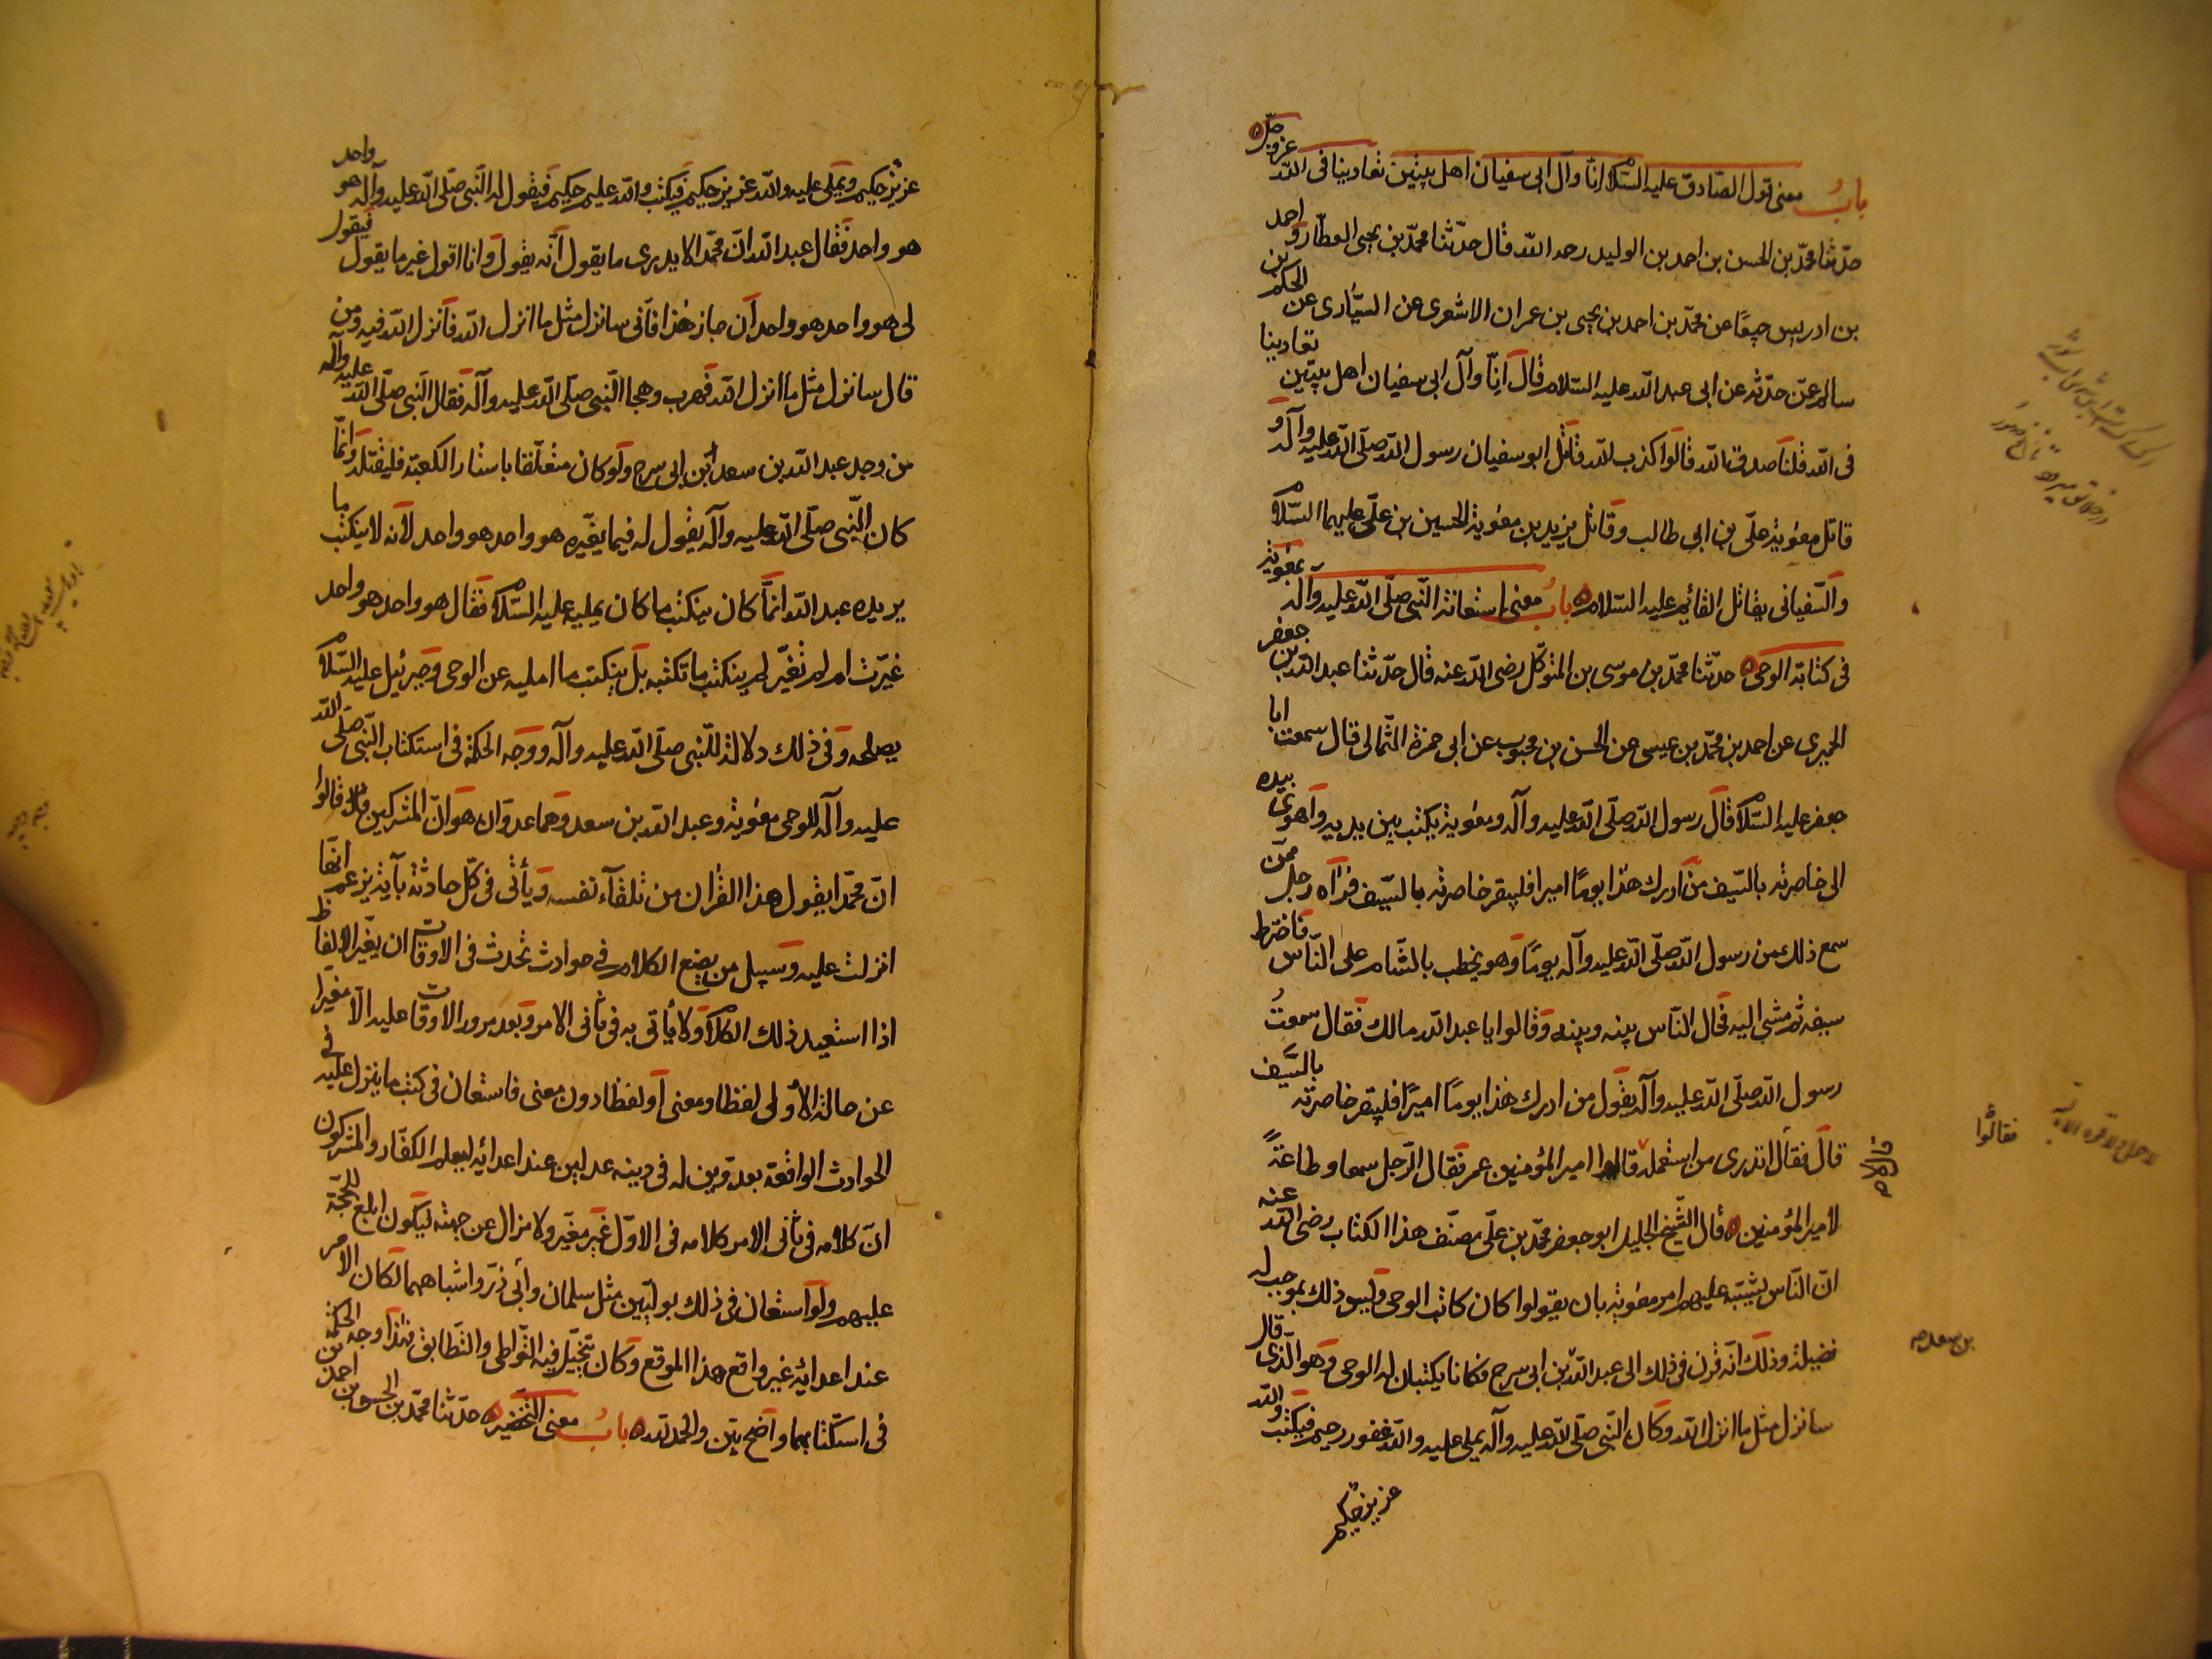 باب معنى قول الصادق عليه السلام انا وآل ابى سفيان اهل بيتين تعادينا فى الله عزوجل
حدثنا محمد بن الحسن بن احمد بن الوليد رحمه الله قال حدثنا محمد بن يحيى العطار و احمد
بن ادريس جميعا عن محمد بن احمد بن يحيى بن عمران الاشعرى عن السيارى عن الحكم بن
سالم عمن حدثه عن ابى عبد الله عليه السلام قال انا وآل ابى سفيان اهل بيتين تعادينا
فى الله قلنا صدق الله قالوا كذب الله قاتل ابو سفيان رسول الله صلى الله عليه وآله و
قاتل معوية على بن ابى طالب وقاتل يزيد بن معوية الحسين بن على عليهما السلام
والسفيانى يقاتل القائم عليه السلام باب معنى استعانة النبى صلى الله عليه وآله بمعوية
فى كتابة الوحى حدثنا محمد بن موسى بن المتوكل رضى الله عنه قال حدثنا عبد الله بن جعفر
الحميرى عن احمد بن محمد بن عيسى عن الحسن بن محبوب عن ابى حمزة الثمالى قال سمعت ابا
جعفر عليه السلام قال رسول الله صلى الله عليه وآله ومعوية يكتب بين يديه واهوى بيده
الى خاصرته بالسيف من ادرك هذا يوما اميرا فليبقر خاصرته بالسيف فرآه رجل ممن
سمع ذلك من رسول الله صلى الله عليه وآله يوما وهو يخطب بالشام على الناس فاخترط
سيفه ثم مشى اليه فحال الناس بينه وبينه وقالوا يا عبد الله مالك فقال سمعت
رسول الله صلى الله عليه وآله يقول من ادرك هذا يوما اميرا فليبقر خاصرته بالسيف
قال فقال اتدرى من استعمله قالوا امير المؤمنين عمر فقال الرجل سمعا وطاعة
لامير المؤمنين قال الشيخ الجليل ابو جعفر محمد بن على مصنف هذا الكتاب رضى الله عنه
ان الناس يشتبه عليهم امر معوية بان يقولوا كان كاتب الوحى وليس ذلك بموجب له
فضيلة وذلك انه قرن فى ذلك الى عبد الله بن ابى سرح فكانا يكتبان له الوحى وهو الذى قال
سانزل مثل ما انزل الله وكان النبى صلى الله عليه وآله يملى عليه والله غفور رحيم فيكتب والله
عزيز حكيم
فقالوا
بن سعد صح
عزيز حكيم ويملى عليه والله عزيز حكيم فيكتب والله عليم حكيم فيقول له النبى صلى الله عليه وآله هو واحد
هو واحد فقال عبد الله ان محمدا لا يدرى ما يقول انه يقول وانا اقول غير ما يقول فيقول
لى هو واحد هو واحد ان جاز هذا فانى سانزل مثل ما انزل الله فانزل الله فيه ومن
قال سانزل مثل ما انزل الله فهرب وهجا النبى صلى الله عليه وآله فقال النبى صلى الله عليه وآله
من وجد عبد الله بن سعد ابن ابى سرح ولو كان متعلقا باستار الكعبة فليقتله وانما
كان النبى صلى الله عليه وآله يقول له فيما يغيره هو واحد هو واحد لانه لا ينكتب ما
يريده عبد الله انما كان ينكتب ما كان يمليه عليه السلام فقال هو واحد هو واحد
غيرت ام لم تغير لم ينكتب ما تكتبه بل ينكتب ما امليه عن الوحى وجبرئيل عليه السلام
يصلحه وفى ذلك دلالة للنبى صلى الله عليه وآله ووجه الحكمة فى استكتاب النبى صلى الله
عليه وآله للوحى معوية وعبد الله بن سعد وهما عدوان هو ان المشركين قالوا
ان محمدا يقول هذا القران من تلقآء نفسه ويأتى فى كل حادثة بآية يزعم انها
انزلت عليه وسبيل من يضع الكلام فى حوادث تحدث فى الاوقات ان يغير الالفاظ
اذا استعيد ذلك الكلام ولا يأتى به فى ثانى الامر وبعد مرور الاوقات عليه الا مغيرا
عن حاله الاولى لفظا ومعنى او لفظا دون معنى فاستعان فى كتب ما ينزل عليه فى
الحوادث الواقعة بعدوين له فى دينه عدلين عند اعدائه ليعلم الكفار والمشركون
ان كلامه فى ثانى الامر كلامه فى الاول غير مغير ولا مزال عن جهته ليكون ابلغ للحجة
عليهم ولو استعان فى ذلك بوليين مثل سلمان وابى ذر واشباههما لكان الامر
عند اعدائه غير واقع هذا الموقع وكان يتخيل فيه التواطى والتطابق فهذا وجه الحكمة
فى استكتابهما واضح بين والحمد لله باب معنى التخضير حدثنا محمد بن الحسن بن احمد بن